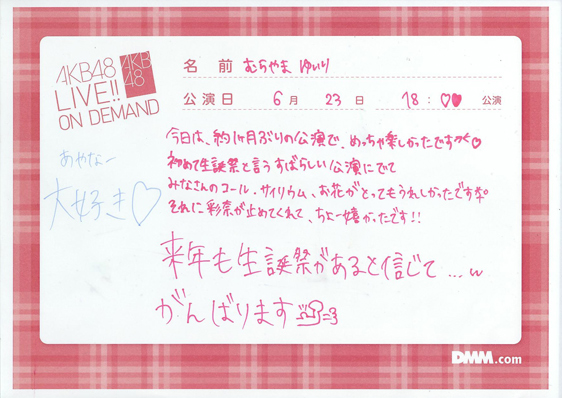 AKB48
LIVE!!
ON DEMAND
AKB
48
名前 むらやま ゆいり
公演日 6月 23日 18:♡♥ 公演
今日は、約1ヶ月ぶりの公演で、めっちゃ楽しかったです♡
初めて生誕祭と言うすばらしい公演にでて
みなさんのコール、サイリウム、お花がとってもうれしかったです
それに彩奈が止めてくれて、ちょー嬉かったです!!
来年も生誕祭があると信じて...w
がんばります
あやなー
大好き♡
DMM.com